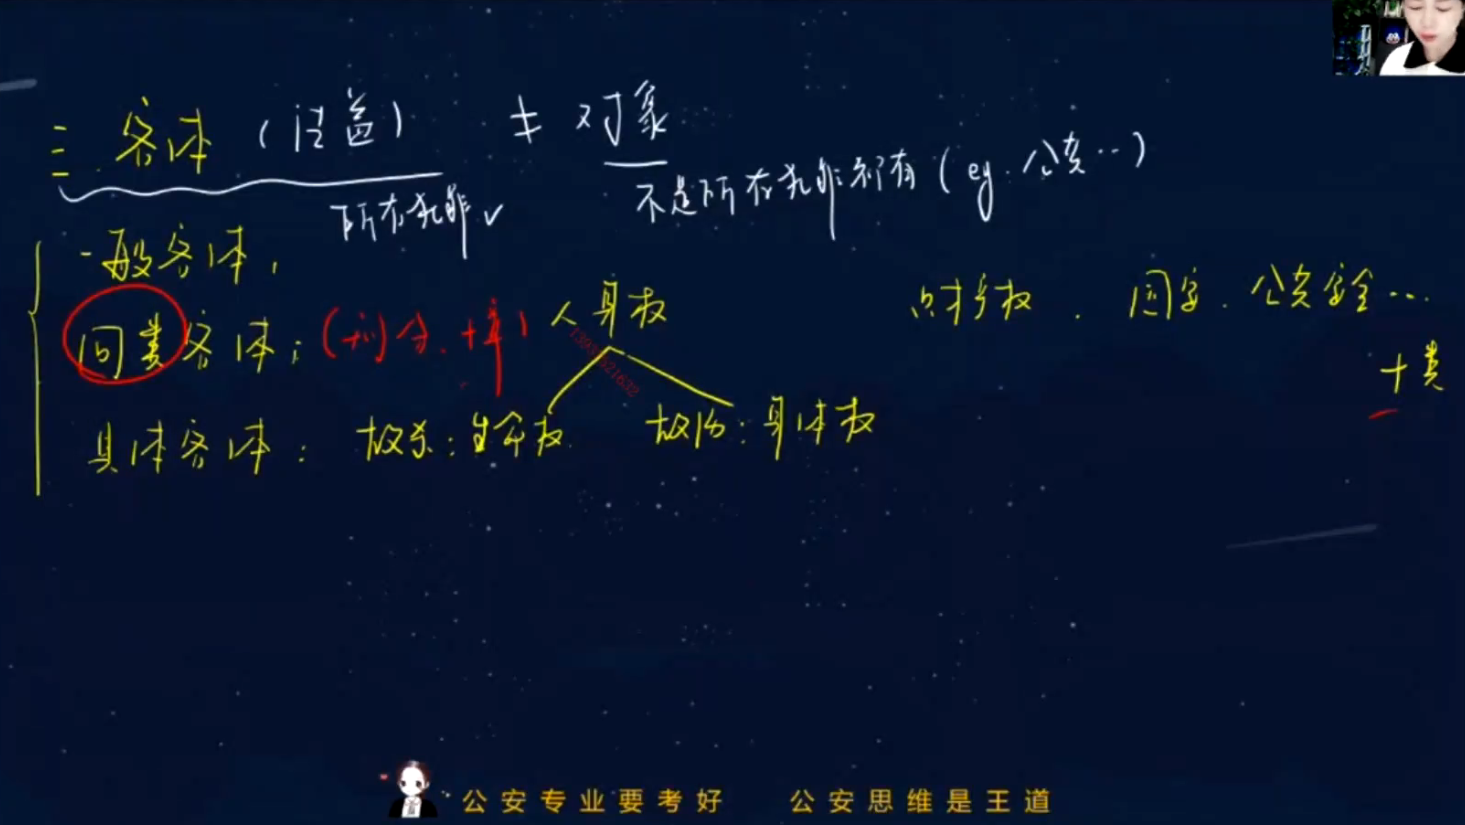 三、客体（法益） ≠ 对象
所有犯罪✓ 不是所有犯罪都有（eg. 公共…）
一般客体，
同类客体：（刑分.十章） 人身权 财产权、国安、公共安全…
十类
具体客体： 故杀：生命权 故伤：身体权
公安专业要考好 公安思维是王道